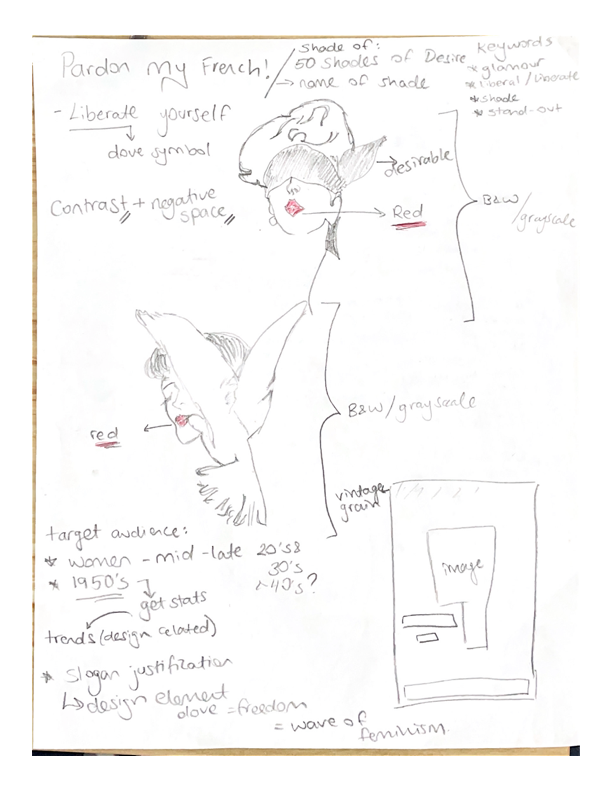 Pardon my French!
Shade of:
50 Shades of Desire
→ name of shade
keywords
* glamour
* liberal / liberate
* shade
* stand-out
- Liberate yourself
dove symbol
→ desirable
Contrast + negative space
→ Red
B&W / grayscale
red
B&W / grayscale
vintage grain
image
target audience:
* women - mid - late 20's &
30's
40's?
* 1950's
get stats
trends (design related)
* Slogan justification
↳ design element
dove = freedom
= wave of
feminism.